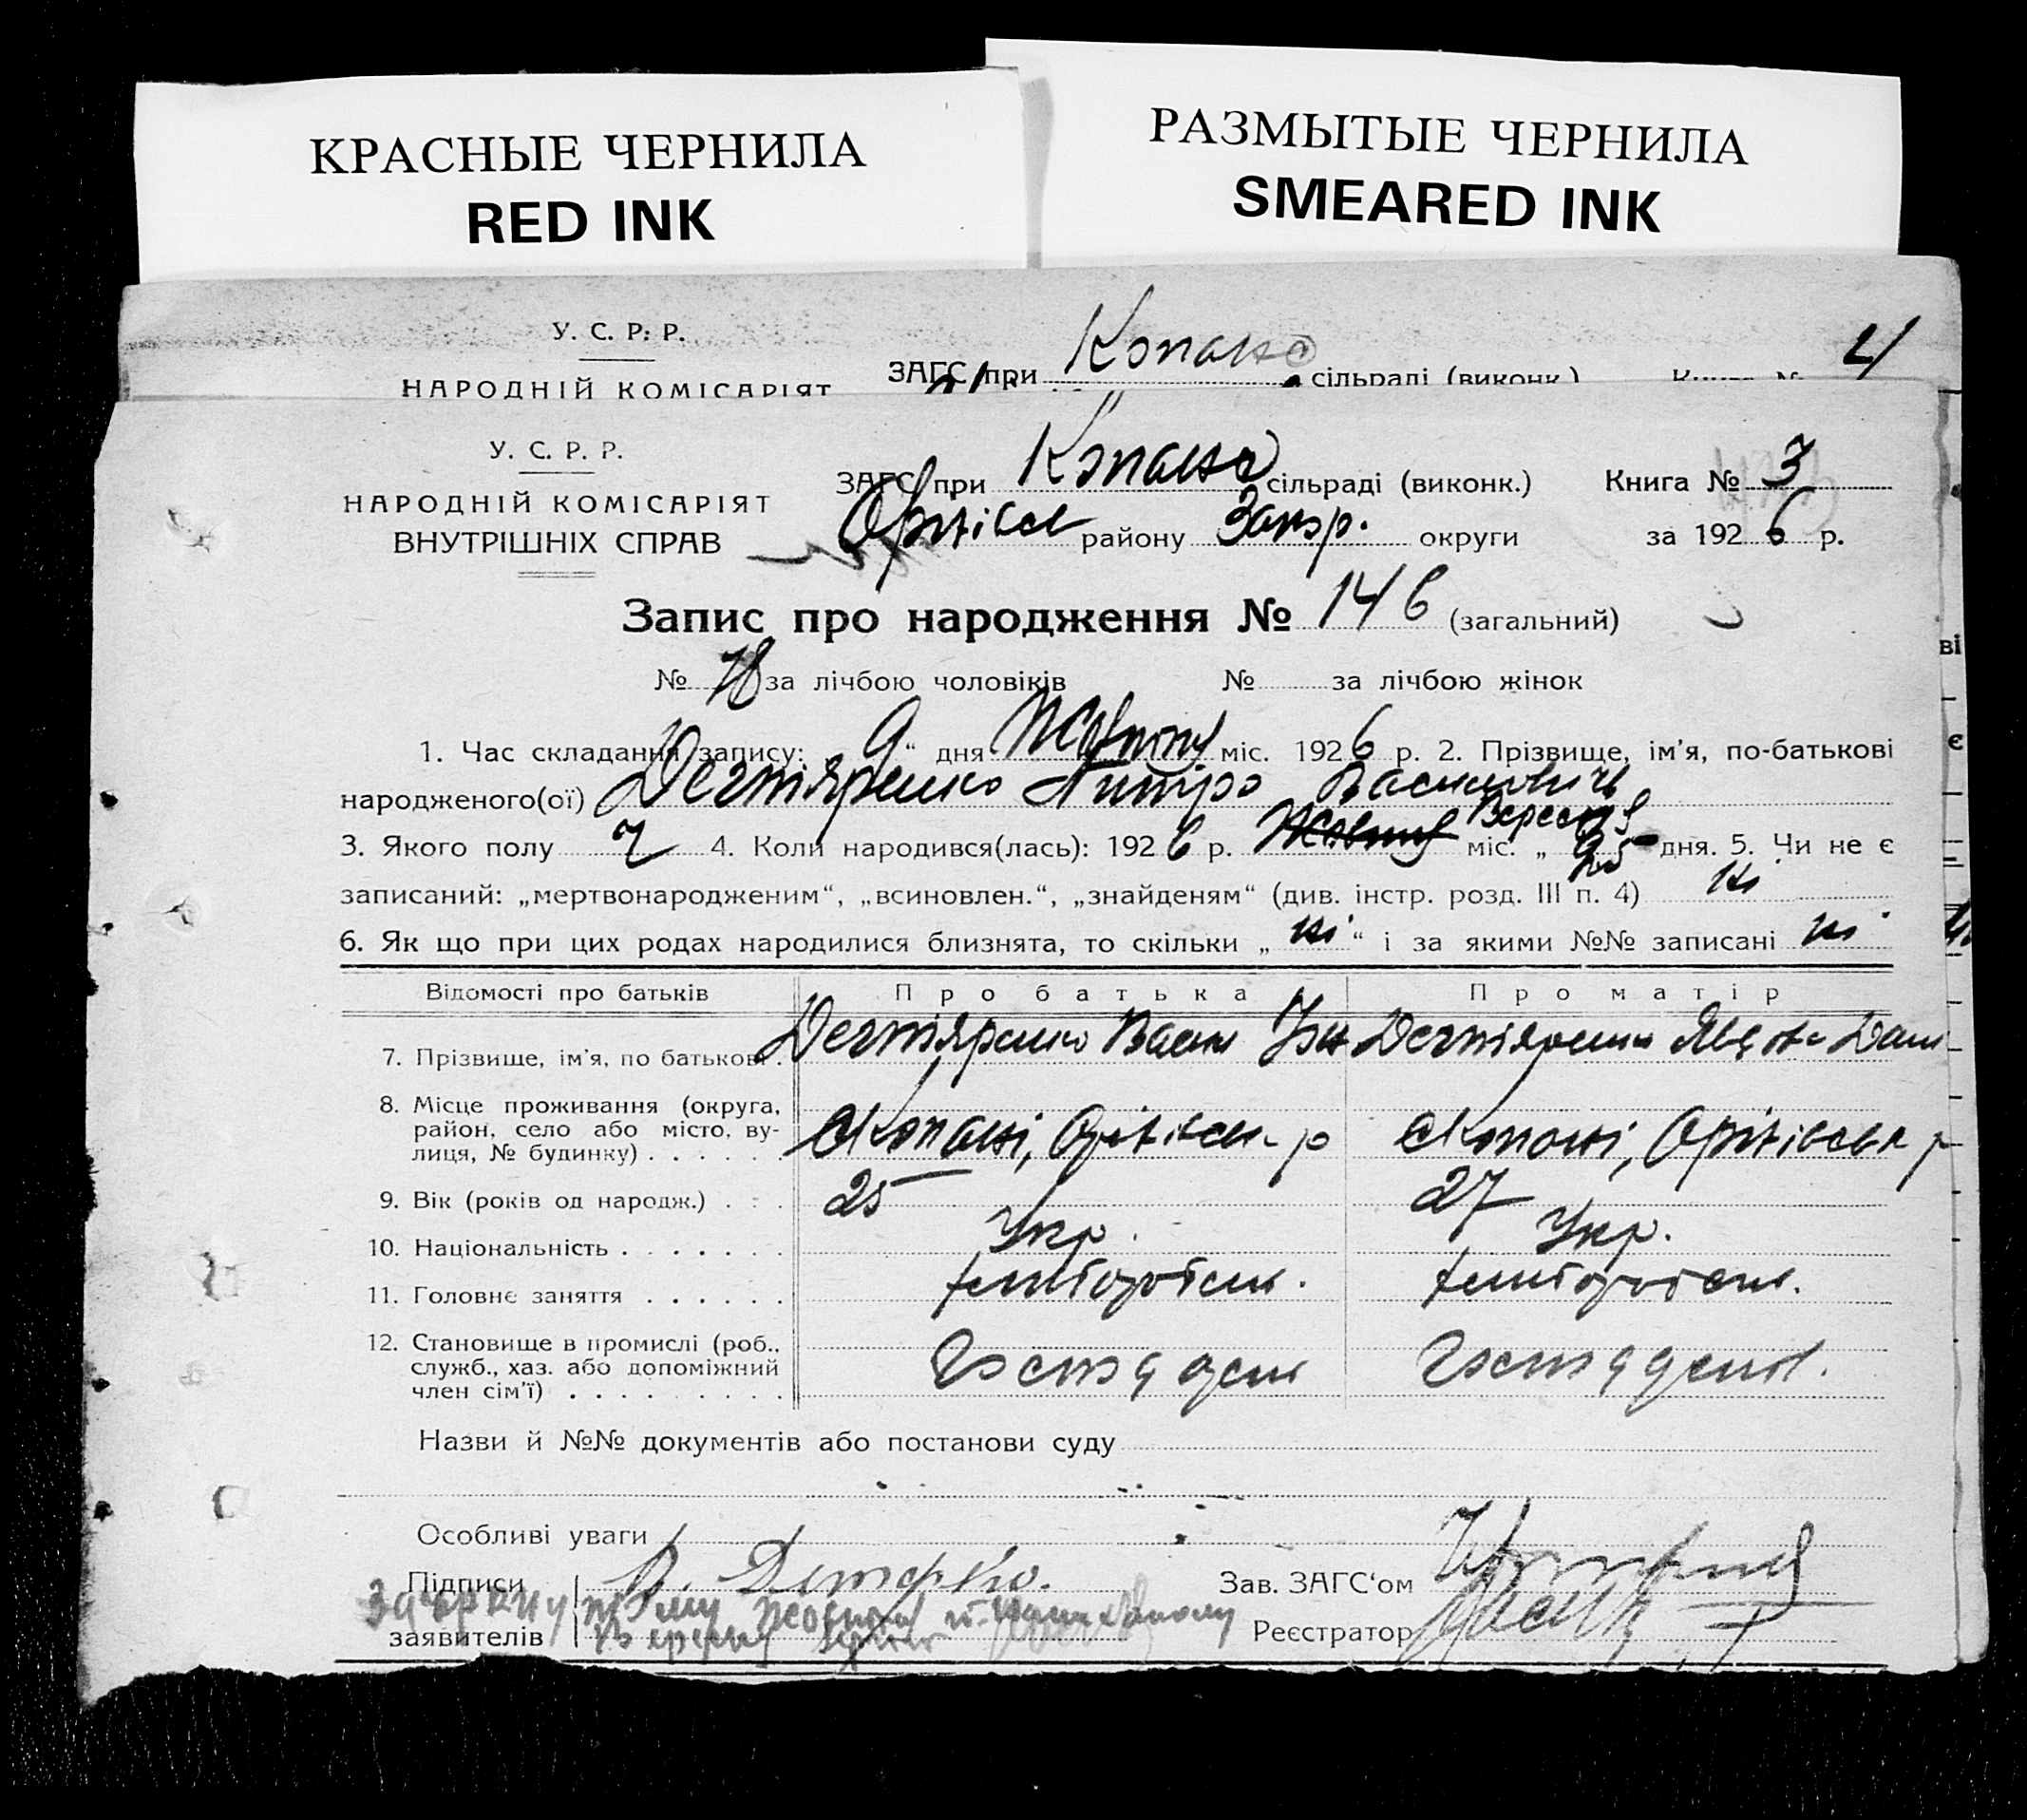 КРАСНЫЕ ЧЕРНИЛА
RED INK
РАЗМЫТЫЕ ЧЕРНИЛА
SMEARED INK
У. С. Р. Р.
НАРОДНІЙ КОМІСАРІЯТ
ЗАГС при Копано сільраді (виконк.)
4
У. С. Р. Р.
НАРОДНІЙ КОМІСАРІЯТ
ВНУТРІШНІХ СПРАВ
ЗАГС при Копано сільраді (виконк.) Книга № 3
Оріхівськ району Запор. округи за 1926 р.
Запис про народження № 146 (загальний)
№ 78 за лічбою чоловіків № за лічбою жінок
1. Час складання запису: 9 “ дня Жовтня міс. 1926 р. 2. Прізвище, ім’я, по-батькові
народженого(ої) Дегтяренко Дмитро Васильович
3. Якого полу ч 4. Коли народився(лась): 1926 р. Жовтня Вересня міс. „ 25 дня. 5. Чи не є
записаний: „мертвонародженим“, „всиновлен.“, „знайденям“ (див. інстр. розд. III п. 4) ні
6. Як що при цих родах народилися близнята, то скільки „ ні “ і за якими №№ записані ні
Відомості про батьків Про батька Про матір
7. Прізвище, ім’я, по батькові. Дегтяренко Васил Ів Дегтяренко Явдоха Дани
8. Місце проживання (округа, район, село або місто, вулиця, № будинку) . . . . . с Копані, Оріхівськ р с Копані, Оріхівськ р
9. Вік (років од народж.) . . . 25 27
10. Національність . . . . . . . Укр. Укр.
11. Головне заняття . . . . . . хліборобств. хліборобств.
12. Становище в промислі (роб., служб., хаз. або допоміжний член сім’ї) . . . . . . . . .
Назви й №№ документів або постанови суду
Особливі уваги
Підписи
заявителів
Зав. ЗАГС‘ом
Реєстратор